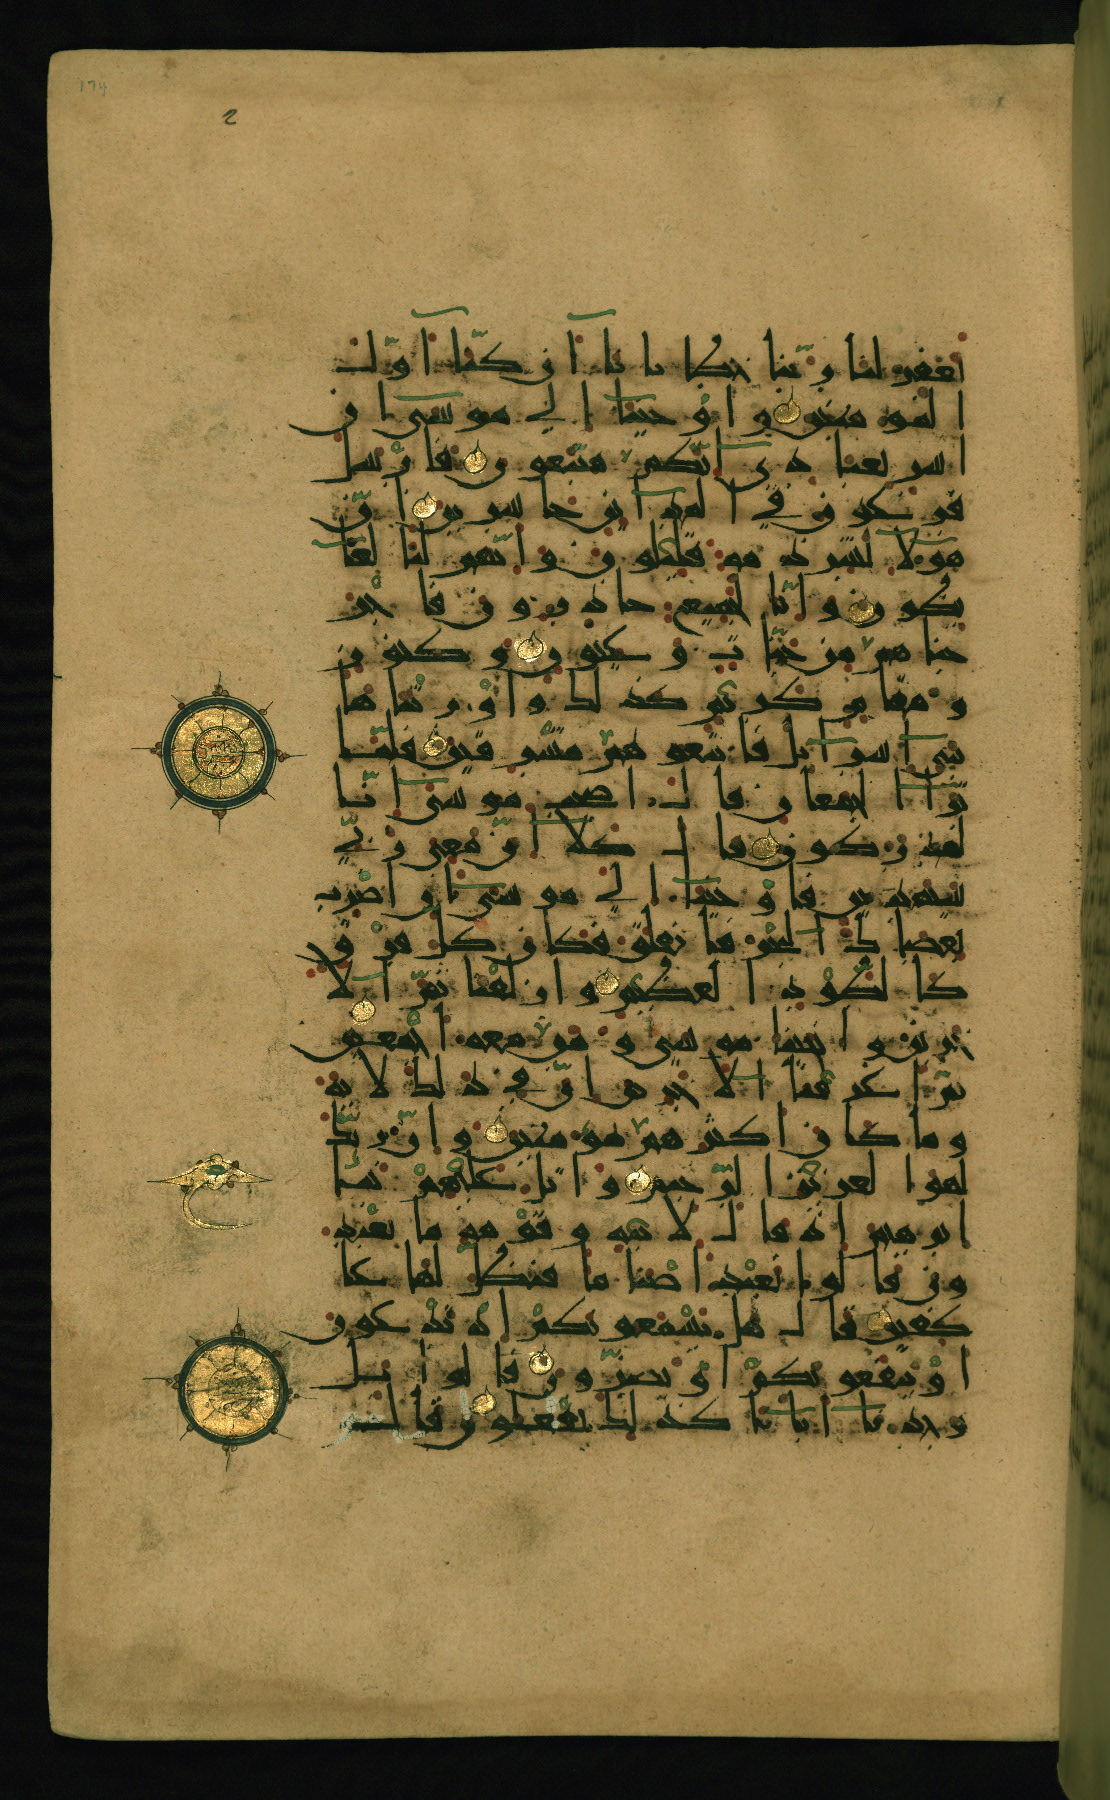 174
2
يغفر لنا ربنا خطايانا ان كنا اول
المومنين واوحينا الى موسى ان
اسر بعبادي انكم متبعون فارسل
فرعون في المداين حاشرين ان
هولا لشرذمة قليلون وانهم لنا لغا
يظون وانا لجميع حاذرون فاخر
جناهم من جنات وعيون وكنوز
ومقام كريم كذلك واورثناها
بني اسرايل فاتبعوهم مشرقين فلما
ترا ا الجمعان قال اصحب موسى انا
لمدركون قال كلا ان معي ربي
سيهدين فاوحينا الى موسى ان اضرب
بعصاك البحر فانفلق فكان كل فرق
كالطود العظيم وازلفنا ثم الا
خرين وانجينا موسى ومن معه اجمعين
ثم اغرقنا الاخرين ان في ذلك لاية
وما كان اكثرهم مومنين وان ربك
لهو العزيز الرحيم واتل عليهم نبا
ابرهيم اذ قال لابيه وقومه ما تعبد
ون قالوا نعبد اصناما فنظل لها عا
كفين قال هل يسمعونكم اذ تدعون
او ينفعونكم او يضرون قالوا بل
وجدنا ابانا كذلك يفعلون قال